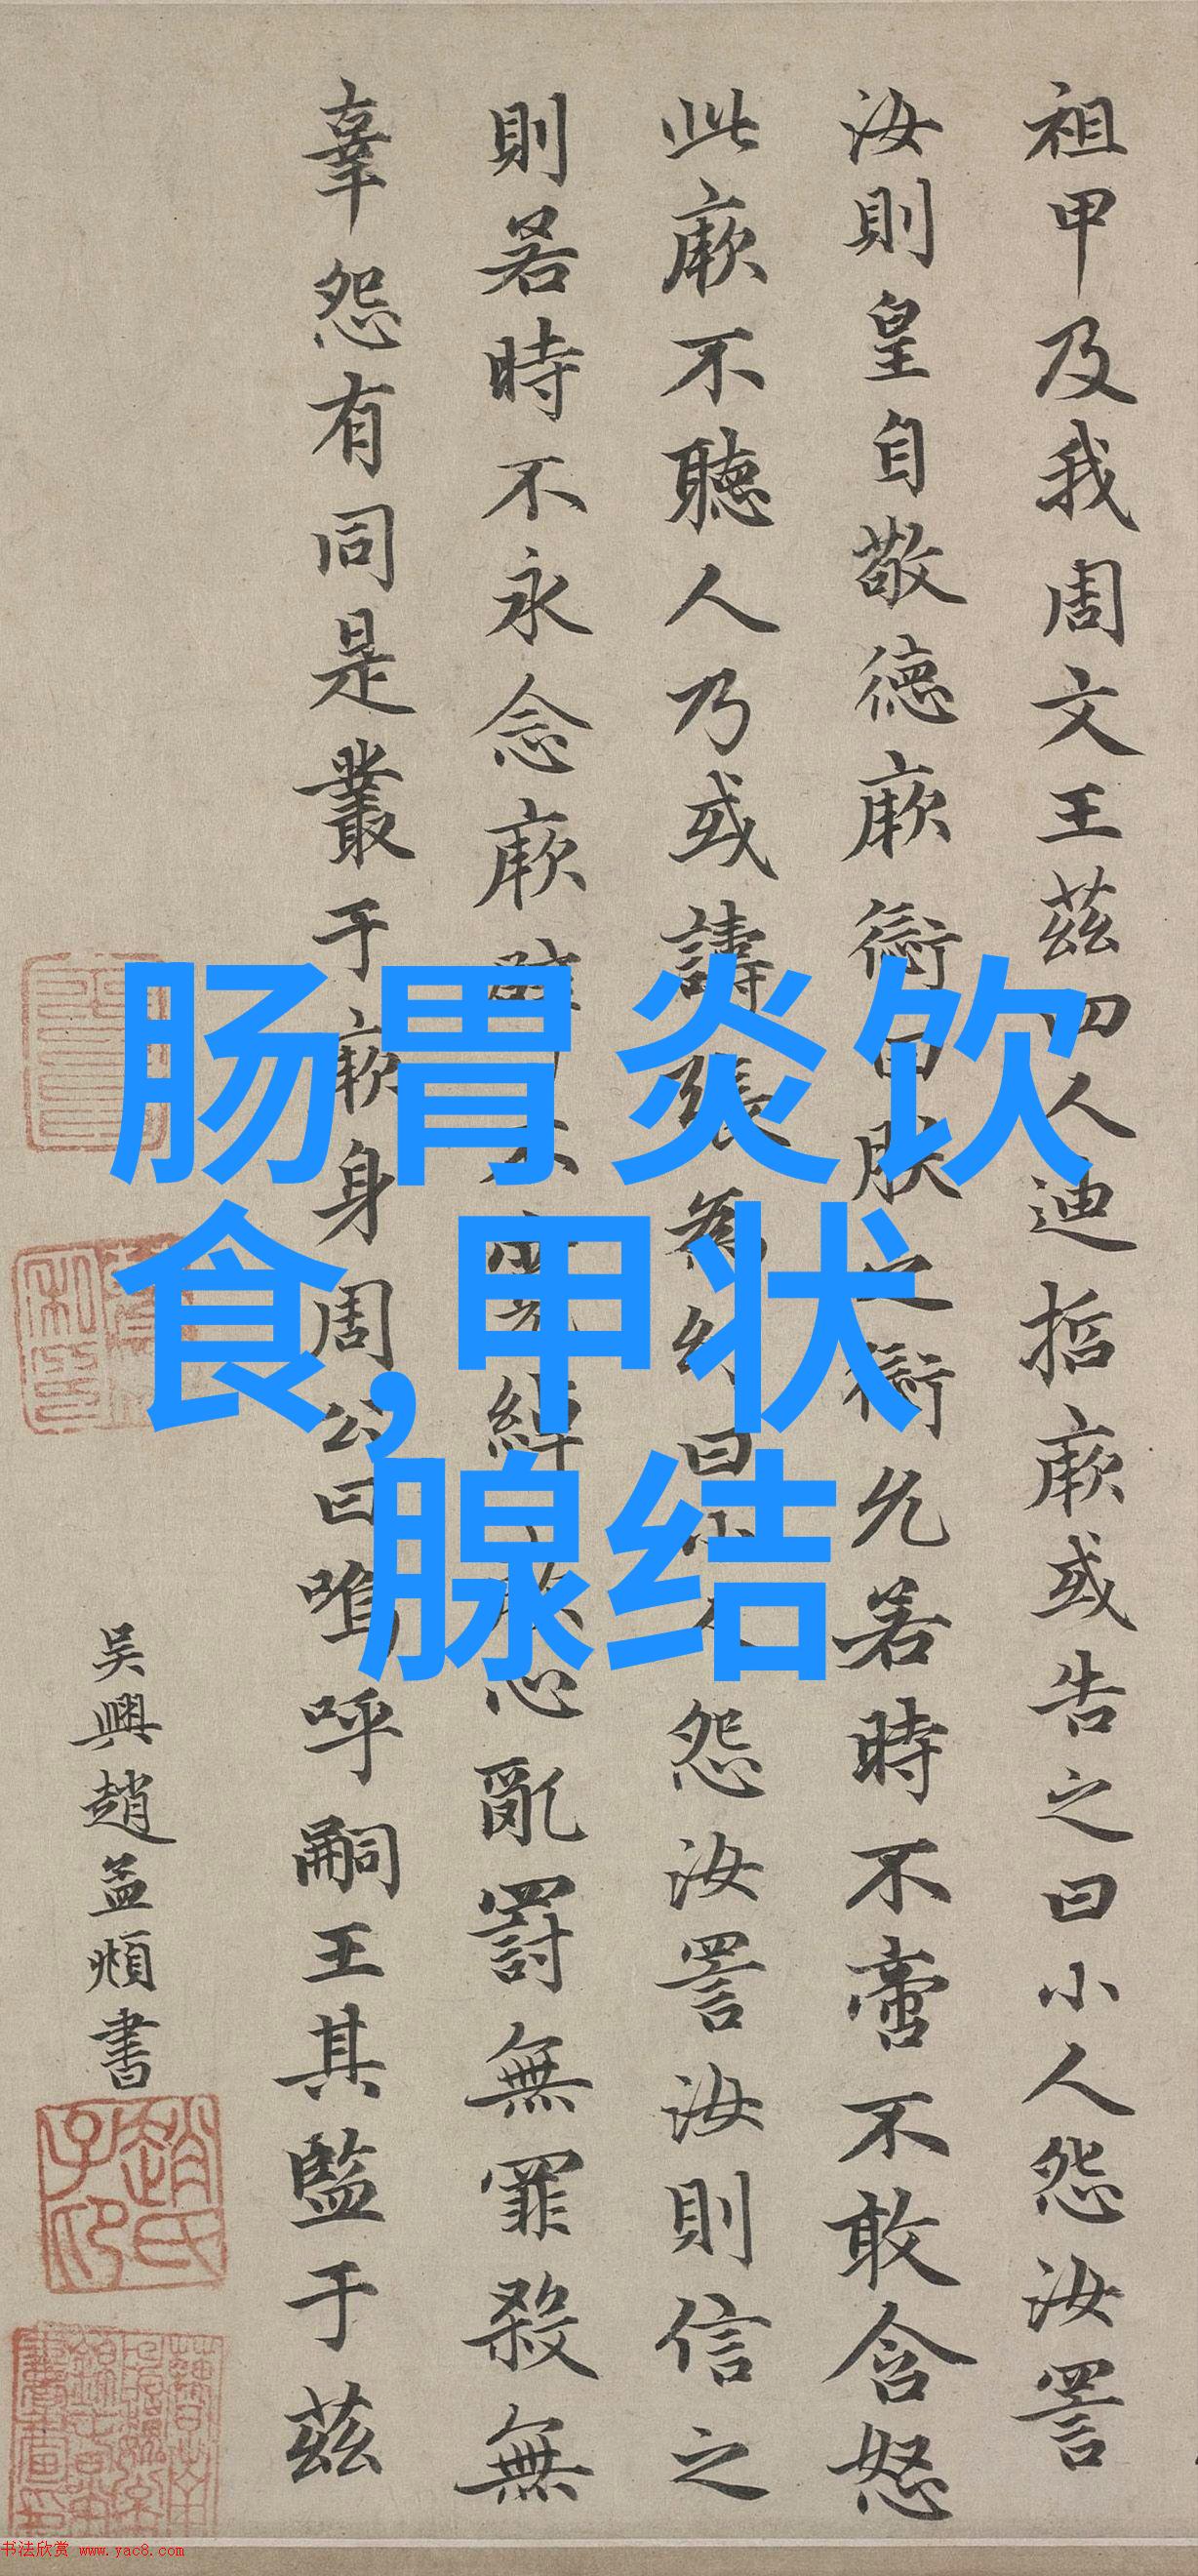 祖甲及我周文王茲四人迪哲厥或告之曰小人怨汝詈
汝則皇自敬德厥愆曰朕之愆允若時不啻不敢含怒
此厥不聽人乃或譸張為幻曰小人怨汝詈汝則信之
則若時不永念厥辟不寬綽厥心亂罰無罪殺無
辜怨有同是叢于厥身周公曰嗚呼嗣王其監于茲
吳興趙孟頫書
趙氏子印
肠胃炎饮
食,甲状
腺结
书法欣赏 www.yac8.com